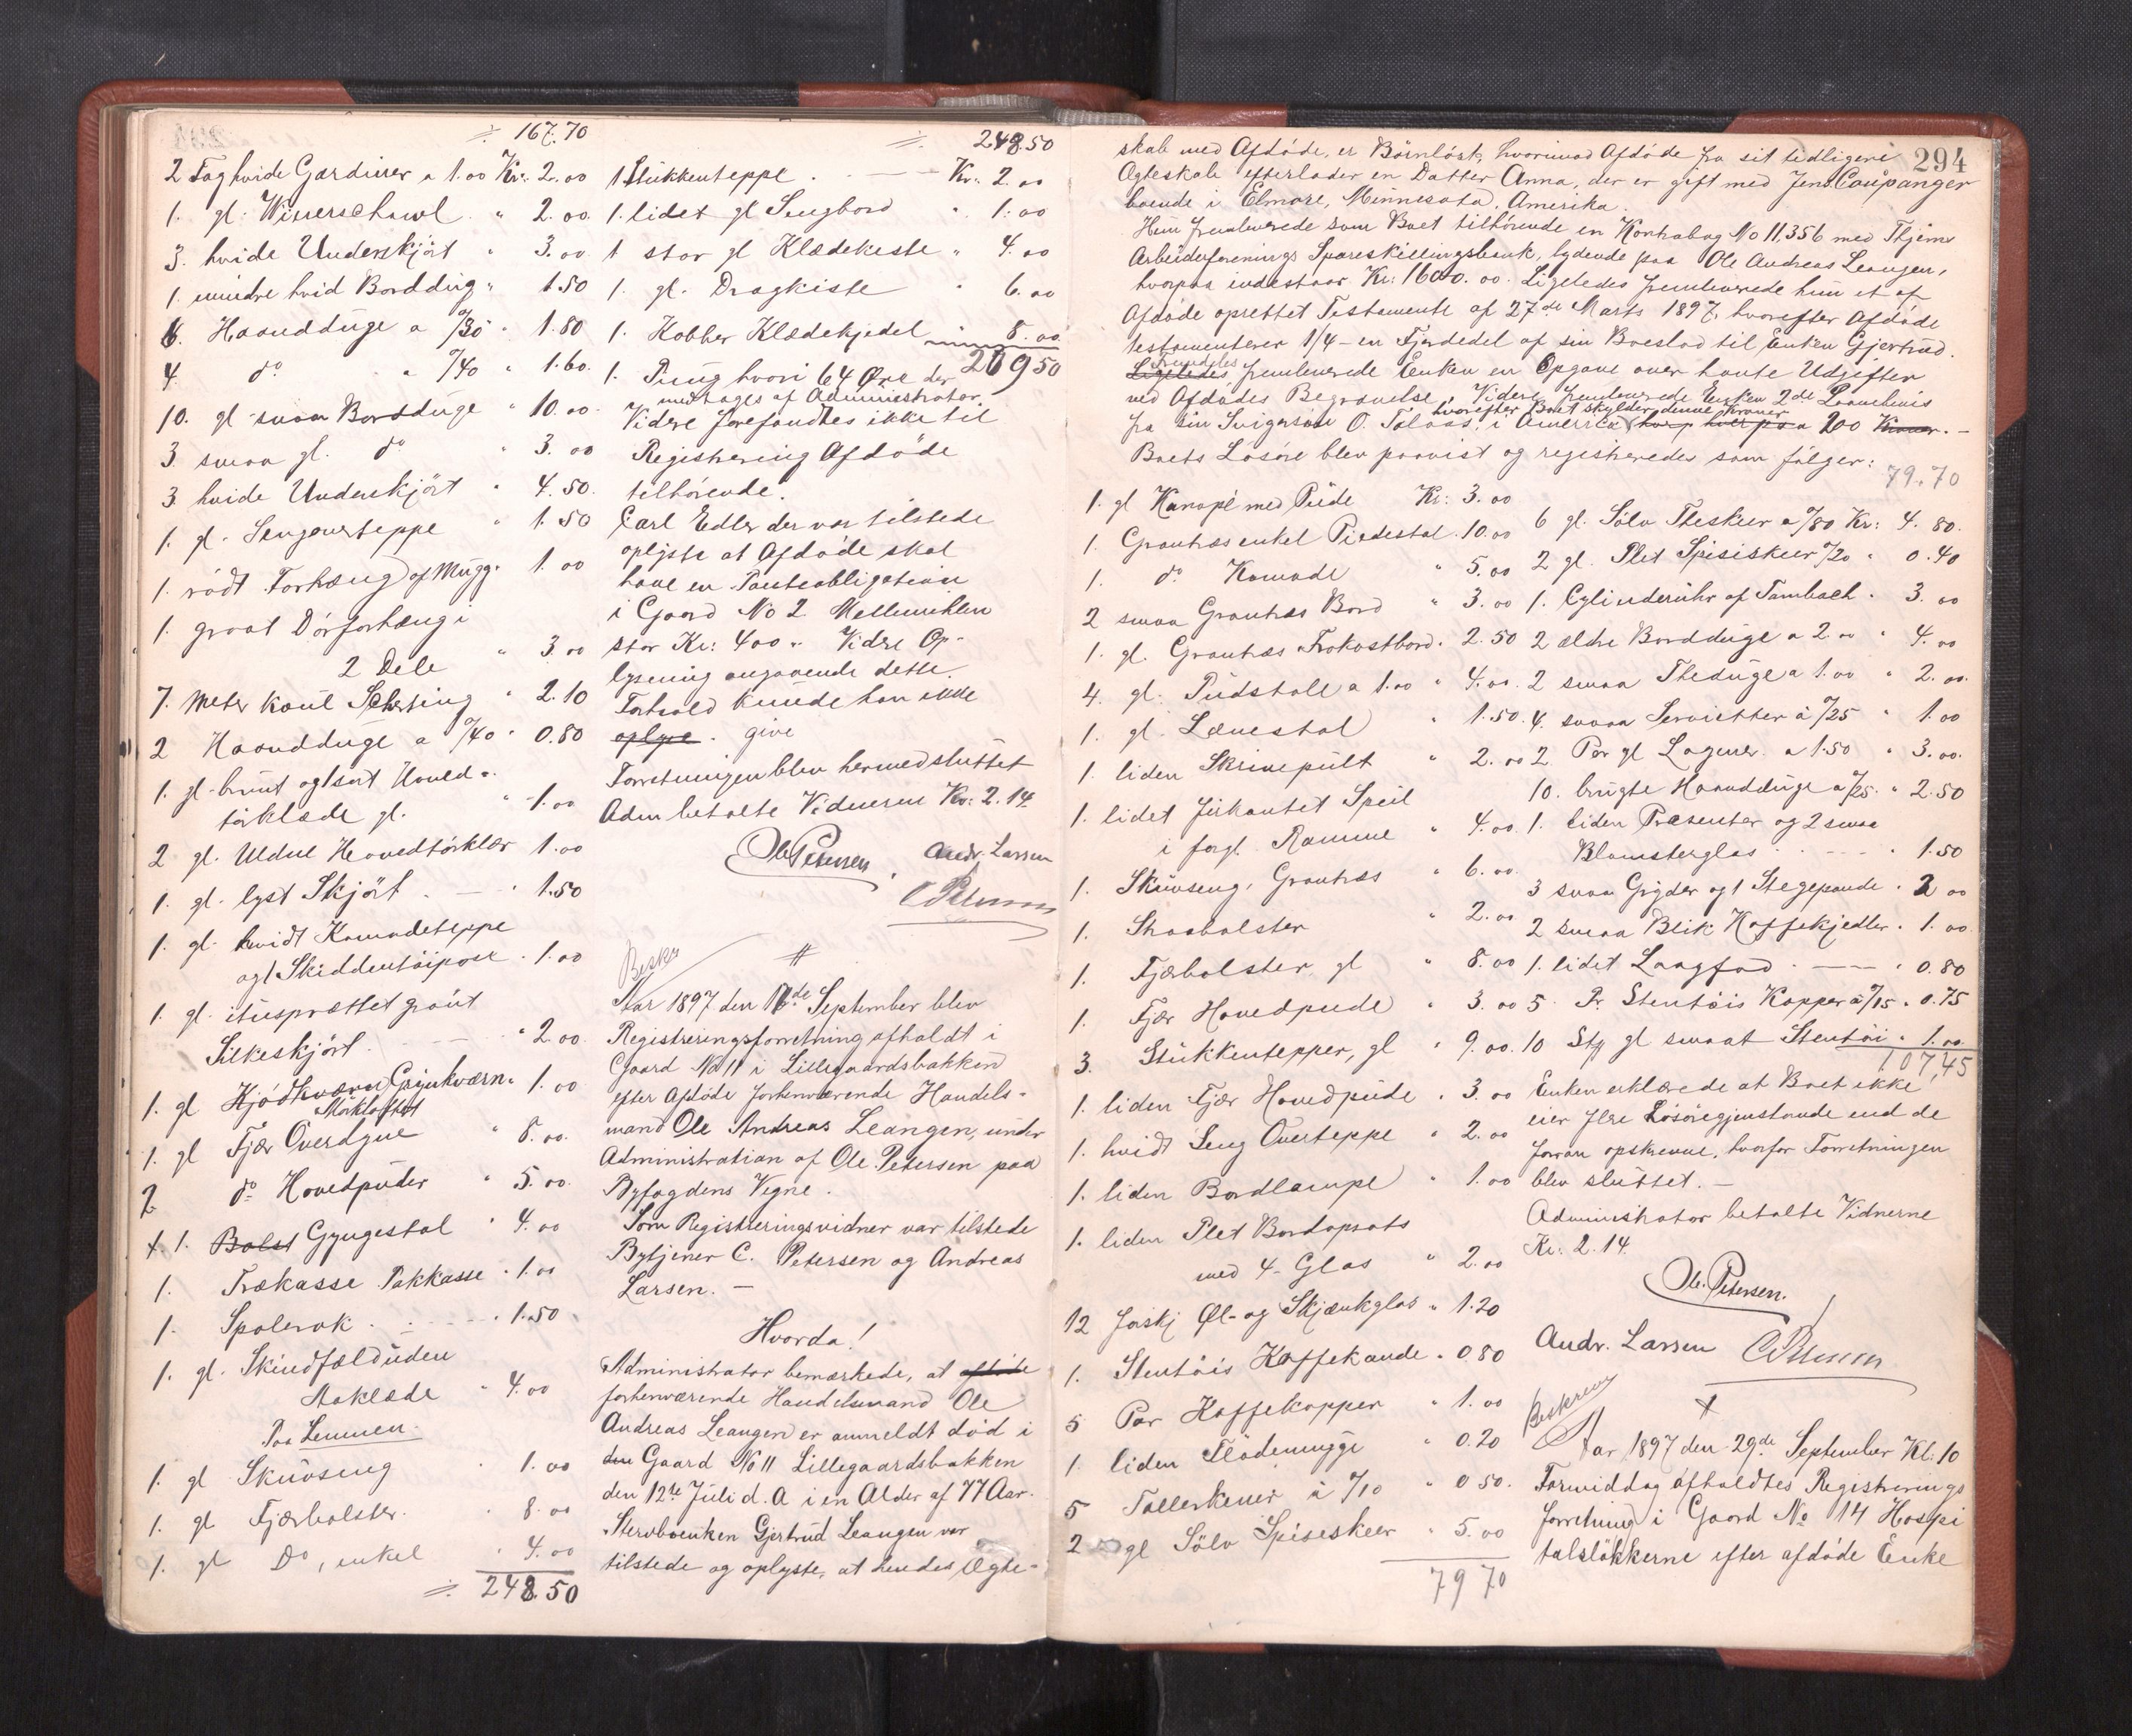 ÷ 167.70
2 Fag hvide Gardiner a 1.00 Kr: 2.00
1. gl. Winerschawl " 2.00
3. hvide Underskjört " 3.00
1. mindre hvid Borddug " 1.50
6. Haandduge a "/30 " 1.80
4 do a "/40 " 1.60
10. gl smaa Bordduge " 10.00
3 smaa gl. do " 3.00
3 hvide Underskjört " 4.50
1. gl. Sengeverteppe " 1.50
1. rödt Forhæng af Mugg " 1.00
1. graat Dörforhæng i
2 Dele " 3.00
7. Meter kaul Schirting " 2.10
2 Haandduge a "/40 " 0.80
1. gl. brunt og 1 sort Hoved-
törklæde gl. " 1.00
2 gl. Uldne Hovedtörklær 1.00
1. gl. lyst Skjört " 1.50
1. gl. hvidt Komodeteppe
og 1 Skiddentöipose " 1.00
1. gl. itusprættet graat
Silkeskjört " 2.00
1. gl Kjödkværn Grynkværn " 1.00
Mörkloftet
1. gl Fjær Overdyne " 8.00
2 do Hovedpuder " 5.00
1. Bolst Gyngestol " 4.00
1. Trækasse Pakkasse " 1.00
1. Spolerok " 1.50
1. gl. Skindfæld uden
Aaklæde " 4.00
Paa Lemmen
1. gl Skuvseng " 1.00
1. gl Fjærbolster " 8.00
1. gl Do, enkel " 4.00
÷ 248.50
÷ 248.50
1 Stukkenteppe Kr. 2.00
1. lidet gl Sengbord " 1.00
1 stor gl Klædekiste " 4.00
1. gl. Dragkiste " 6.00
1. Kobber Klædekjedel " 8.00
269 50
1. Pung hvori 64 Øre der
medtages af Administrator
Videre forefandtes ikke til
Registrering Afdöde
tilhörende.
Carl Edler der var tilstede
oplyste at Afdöde skal
have en Panteobligation
i Gaard No 2 Mellemihlen
stor Kr: 400 " Vidre Op-
lysning angaaende dette
Forhold kunde han ikke
oplyse. give
Forretningen blev hermed sluttet
Adm betalte Vidnerne Kr: 2.14
Ole Petersen. Andr. Larsen
C Petersen
Beskr
#
Aar 1897 den de September blev
Registreringsforretning afholdt i
Gaard No 11 i Lillegaardsbakken
efter Afdöde forhenværende Handels-
mand Ole Andreas Leangen, under
Administration af Ole Petersen paa
Byfogdens Vegne.
Som Registreringsvidner var tilstede
Bytjener C. Petersen og Andreas
Larsen. —
Hvorda!
Administrator bemærkede, at afdöde
forhenværende Handelsmand Ole
Andreas Leangen er anmeldt död i
den Gaard No 11 Lillegaardsbakken
den 12te Juli d. A i en Alder af 77 Aar.
Stervboenken Gjertrud Leangen var
tilstede og oplyste, at hendes Ægte-
294
skab med Afdöde, er Börnlöst, hvorimod Afdöde fra sit tidligere
Ægteskab efterlader en Datter Anna, der er gift med Jens Caupanger
boende i Elmore, Minnesota, Amerika.
Hun fremleverede som Boet tilhörende en Kontrabog No 11,356 med Thjems
Arbeiderforenings Spareskillingsbank, lydende paa Ole Andreas Leangen,
hvorpaa indestaar Kr: 1600.00. Ligeledes fremleverede hun et af
Afdöde oprettet Testamente af 27de Marts 1897, hvorefter Afdöde
testamenterer 1/4 - en Fjerdedel af sin Boeslod til Enken Gjertrud.
Fremdeles
Ligeledes fremleverede Enken en Opgave over havte Udgifter
ved Afdödes Begravelse. Videre fremleverede Enken 2de Laanebevis
hvorefter Boet skylder denne Kroner
fra sin Svigersön O. Tolaas, i Amerika 200 Kroner. —
Boets Lösöre blev paavist og registreredes som fölger:
1. gl Kanapé med Pude Kr: 3.00
1. Grantræs enkel Piedestal " 10.00
1. do Komode " 5.00
2 smaa Grantræs Bord " 3.00
1. gl. Grantræs Frokostbord " 2.50
4. gl. Pudstole a 1.00 " 4.00
1. gl. Lænestol " 1.50
1. liden Skrivepult " 2.00
1. lidet firkantet Speil
i forgl. Ramme " 4.00
1. Skuvseng, Grantræs " 6.00
1. Straabolster " 2.00
1. Fjærbolster gl " 8.00
1. Fjær Hovedpude " 3.00
3. Stukkentepper, gl " 9.00
1. liden Fjær Hovedpude " 3.00
1. hvidt Seng Overteppe " 2.00
1. liden Bordlampe " 1.00
1. liden Plet Bordopsats
med 4 Glas " 2.00
12 forskj Øl- og Skjænkglas " 1.20
1. Stentöis Kaffekande " 0.80
5 Par Kaffekopper " 1.00
1 liden Flödemugge " 0.20
5 Tallerkener à "/10 " 0.50
2 gl Sölv Spiseskeer " 5.00
79 70
79.70
6 gl. Sölv Theskeer a "/80 Kr: 4.80
2 gl. Plet Spiseskeer "/20 " 0.40
1. Cylinderuhr af Tambach " 3.00
2 ældre Bordduge a 2.00 " 4.00
2 smaa Theduge a 1.00 " 2.00
4. smaa Servietter à "/25 " 1.00
2 Par gl Lagener a 1.50 " 3.00
10. brugte Haandduge a "/25 " 2.50
1. liden Præsenter og 2 smaa
Blomsterglas " 1.50
3 smaa Gryder og 1 Stegepande " 2.00
2 smaa Blik Kaffekjedler " 1.00
1. lidet Langfad " 0.80
5 Pr. Stentöis Kopper à "/15 " 0.75
10 Stk gl smaat Stentöi " 1.00
107,45
Enken erklærede at Boet ikke
eier flere Lösöregjenstande end de
forran opskrevne, hvorfor Forretningen
blev sluttet. —
Administrator betalte Vidnerne
Kr: 2.14.
Ole Petersen.
Andr. Larsen C Petersen
Beskreven
+
Aar 1897 den 29de September Kl: 10
Formiddag afholdtes Registrerings
forretning i Gaard No 114 Hospi
talslökkerne efter afdöde Enke